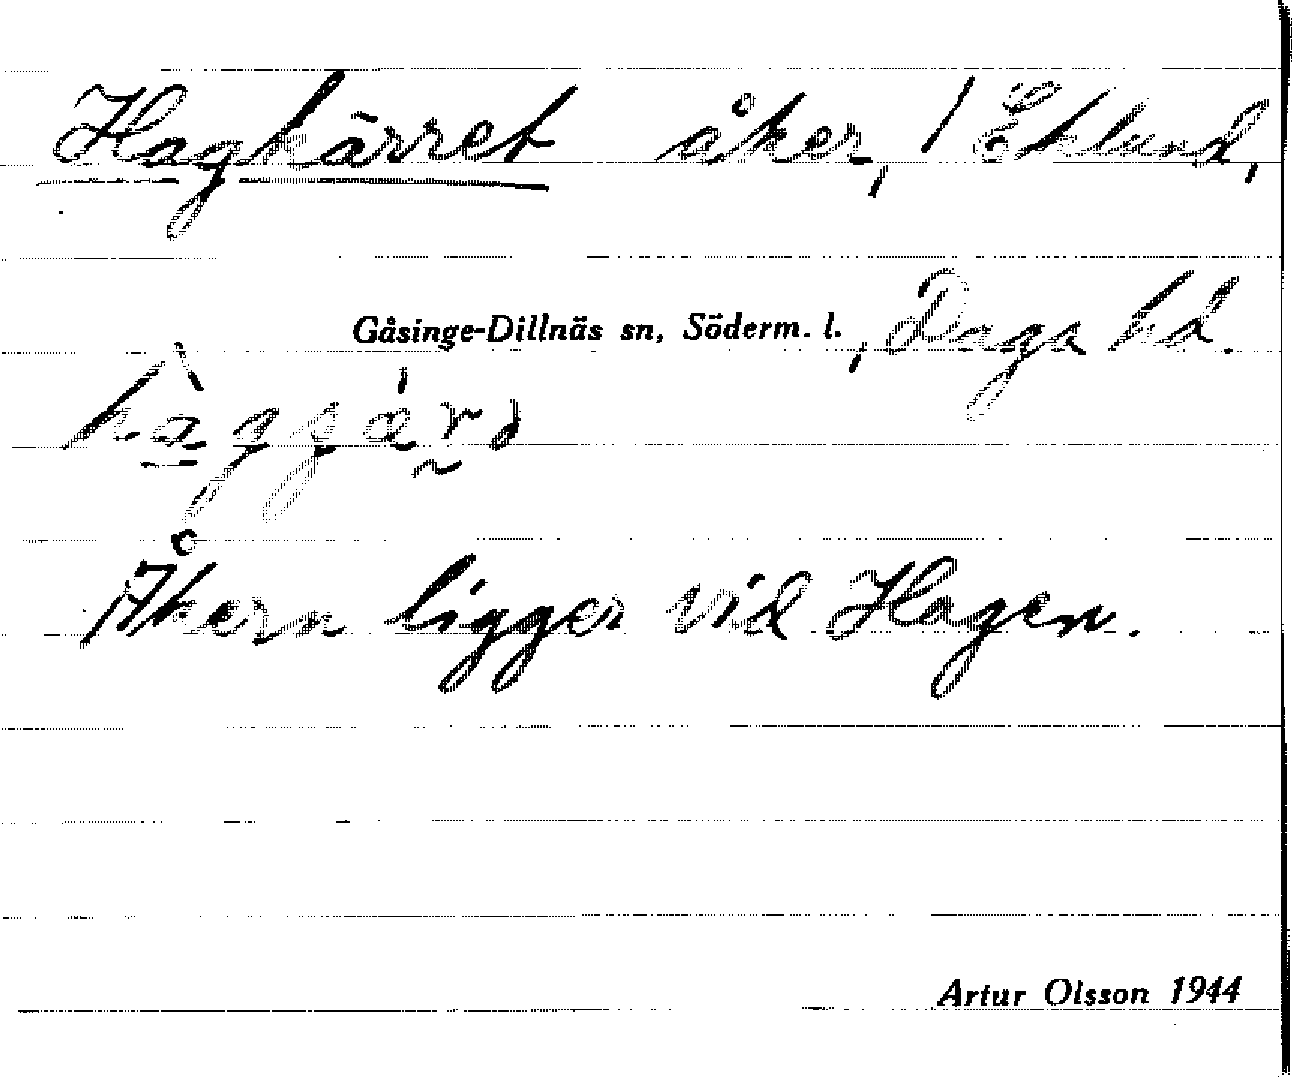 Hagkärret åker, 1 Eklund,
Gåsinge-Dillnäs sn, Söderm. l., Daga hd.
Åkern ligger vid Hagen.
Artur Olsson 1944